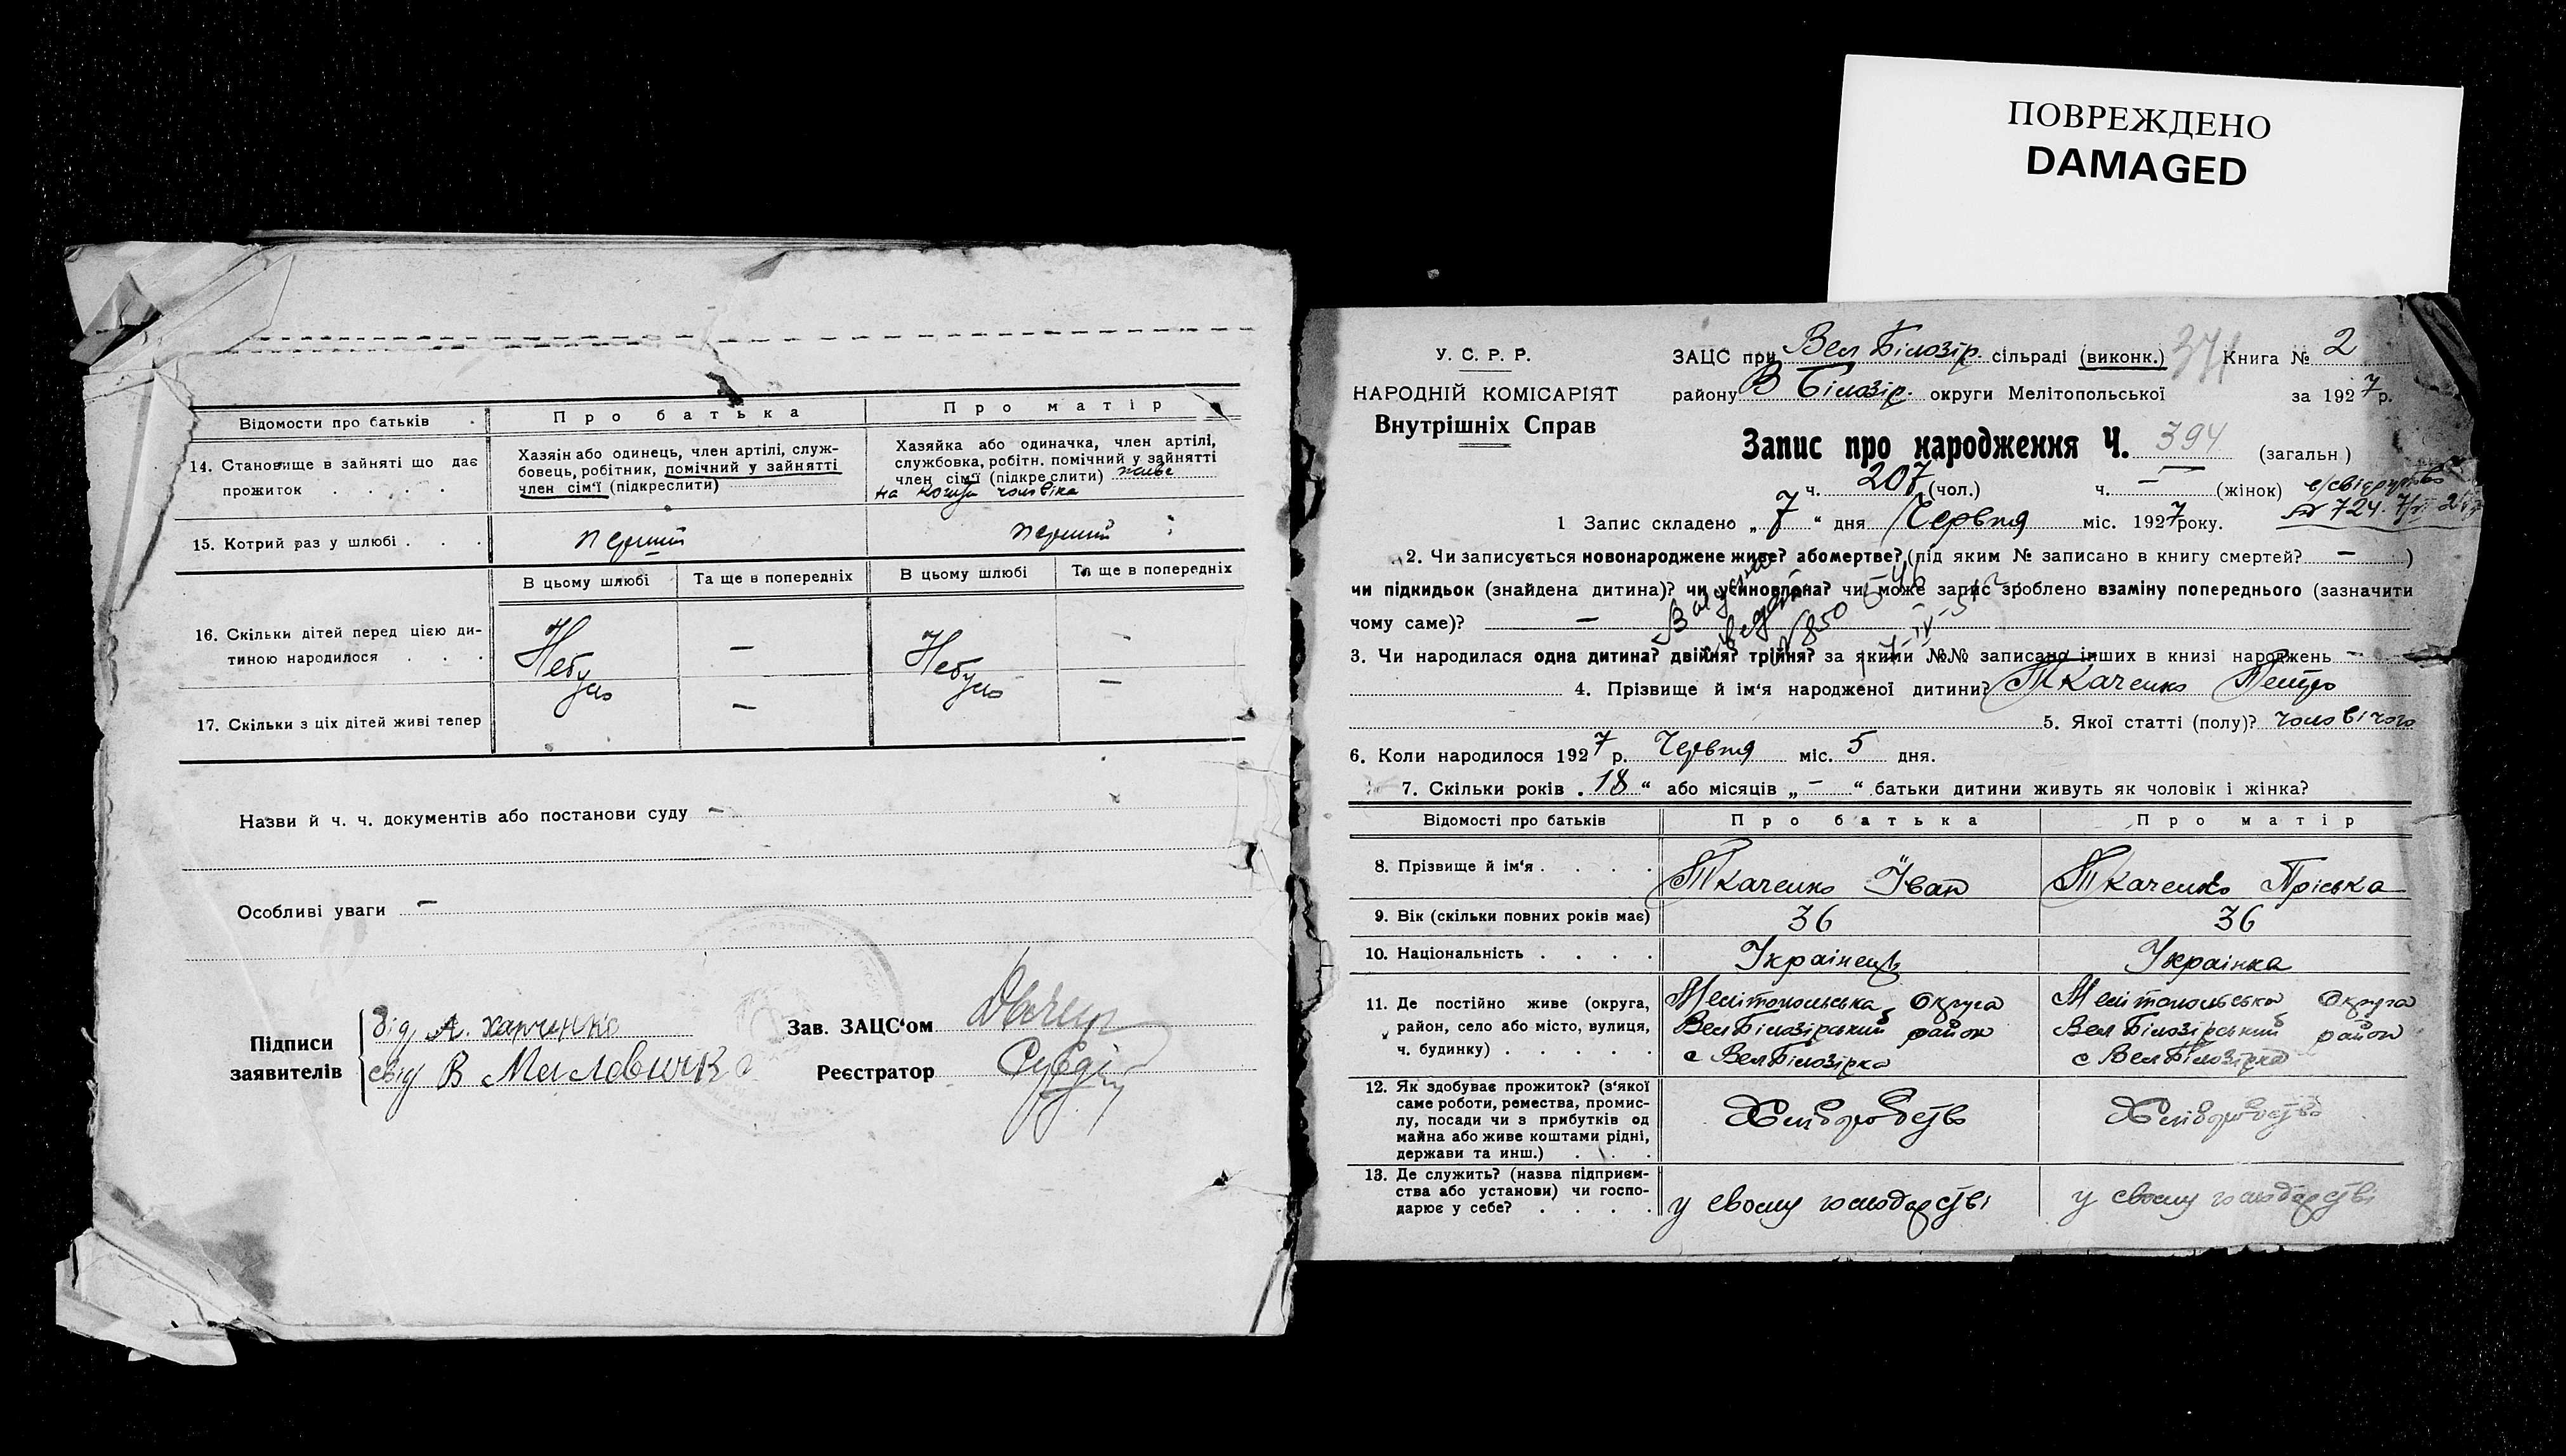 ПОВРЕЖДЕНО
DAMAGED
Відомости про батьків
Про батька
Про матір
14. Становище в зайняті що дає прожиток . . . .
Хазяїн або одинець, член артілі, служ-
бовець, робітник, помічний у зайнятті
член сім'ї (підкреслити)
Хазяйка або одиначка, член артілі,
службовка, робітн. помічний у зайнятті
член сім'ї (підкреслити) живе
на кошти чоловіка
15. Котрий раз у шлюбі . . . перший перший
В цьому шлюбі Та ще в попередніх В цьому шлюбі Та ще в попередніх
16. Скільки дітей перед цією ди-
тиною народилося . . .
Небуло — Небуло —
17. Скільки з ціх дітей живі тепер — —
Назви й ч. ч. документів або постанови суду —
Особливі уваги —
Підписи
заявителів
А. Харченко
В Масловик
Зав. ЗАЦС'ом
Реєстратор
У. С. Р. Р.
НАРОДНІЙ КОМІСАРІЯТ
Внутрішніх Справ
ЗАЦС при Вел Білозір. сільраді (виконк.) 371 Книга № 2
району В Білозір. округи Мелітопольської за 1927 р.
Запис про народження Ч. 394 (загальн)
ч. 207 (чол.) ч. — (жінок)
№ 724. 7/VI
1 Запис складено „ 7 “ дня Червня міс. 1927 року.
2. Чи записується новонароджене живе? або мертве? (під яким № записано в книгу смертей? — )
чи підкидьок (знайдена дитина)? чи усиновлена? чи може запис зроблено взаміну попереднього (зазначити
чому саме)? —
№850
3. Чи народилася одна дитина? двійня? трійня? за якими №№ записано інших в книзі народжень —
4. Прізвище й ім'я народженої дитини? Ткаченко Петро
5. Якої статті (полу)? чоловічого
6. Коли народилося 1927 р. Червня міс. 5 дня.
7. Скільки років . 18 “ або місяців „ — “ батьки дитини живуть як чоловік і жінка?
Відомості про батьків Про батька Про матір
8. Прізвище й ім'я . . . . Ткаченко Іван Ткаченко Пріська
9. Вік (скільки повних років має) 36 36
10. Національність . . . . Українець Українка
11. Де постійно живе (округа,
район, село або місто, вулиця,
ч. будинку) . . . . .
Мелітопольська Округа
Вел Білозірський район
с ВелБілозірка
Мелітопольська Округа
Вел Білозірський район
с ВелБілозірка
12. Як здобуває прожиток? (з'якої
саме роботи, ремества, промис-
лу, посади чи з прибутків од
майна або живе коштами рідні,
держави та инш.) . . .
Хліборобство
Хліборобство
13. Де служить? (назва підприєм-
ства або установи) чи госпо-
дарює у себе? . . . .
у своєму господарстві
у своєму господарстві